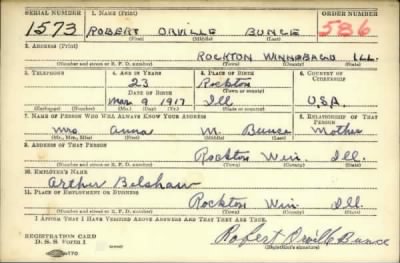 SERIAL NUMBER 1. NAME (Print) ORDER NUMBER
1573 ROBERT ORVILLE BUNCE 586
(First) (Middle) (Last)
2. ADDRESS (Print)
ROCKTON WINNEBAGO ILL.
(Number and street or R. F. D. number) (Town) (County) (State)
3. TELEPHONE 4. AGE IN YEARS 5. PLACE OF BIRTH 6. COUNTRY OF CITIZENSHIP
23 Rockton
DATE OF BIRTH (Town or county)
Mar. 9 1917 Ill U.S.A.
(Exchange) (Number) (Mo.) (Day) (Yr.) (State or country)
7. NAME OF PERSON WHO WILL ALWAYS KNOW YOUR ADDRESS 8. RELATIONSHIP OF THAT PERSON
Mrs. Anna M. Bunce Mother
(Mr., Mrs., Miss) (First) (Middle) (Last)
9. ADDRESS OF THAT PERSON
Rockton Win. Ill.
(Number and street or R. F. D. number) (Town) (County) (State)
10. EMPLOYER'S NAME
Arthur Belshaw
11. PLACE OF EMPLOYMENT OR BUSINESS
Rockton Win. Ill.
(Number and street or R. F. D. number) (Town) (County) (State)
I AFFIRM THAT I HAVE VERIFIED ABOVE ANSWERS AND THAT THEY ARE TRUE.
REGISTRATION CARD
D. S. S. Form 1
Robert Orville Bunce
(Registrant's signature)